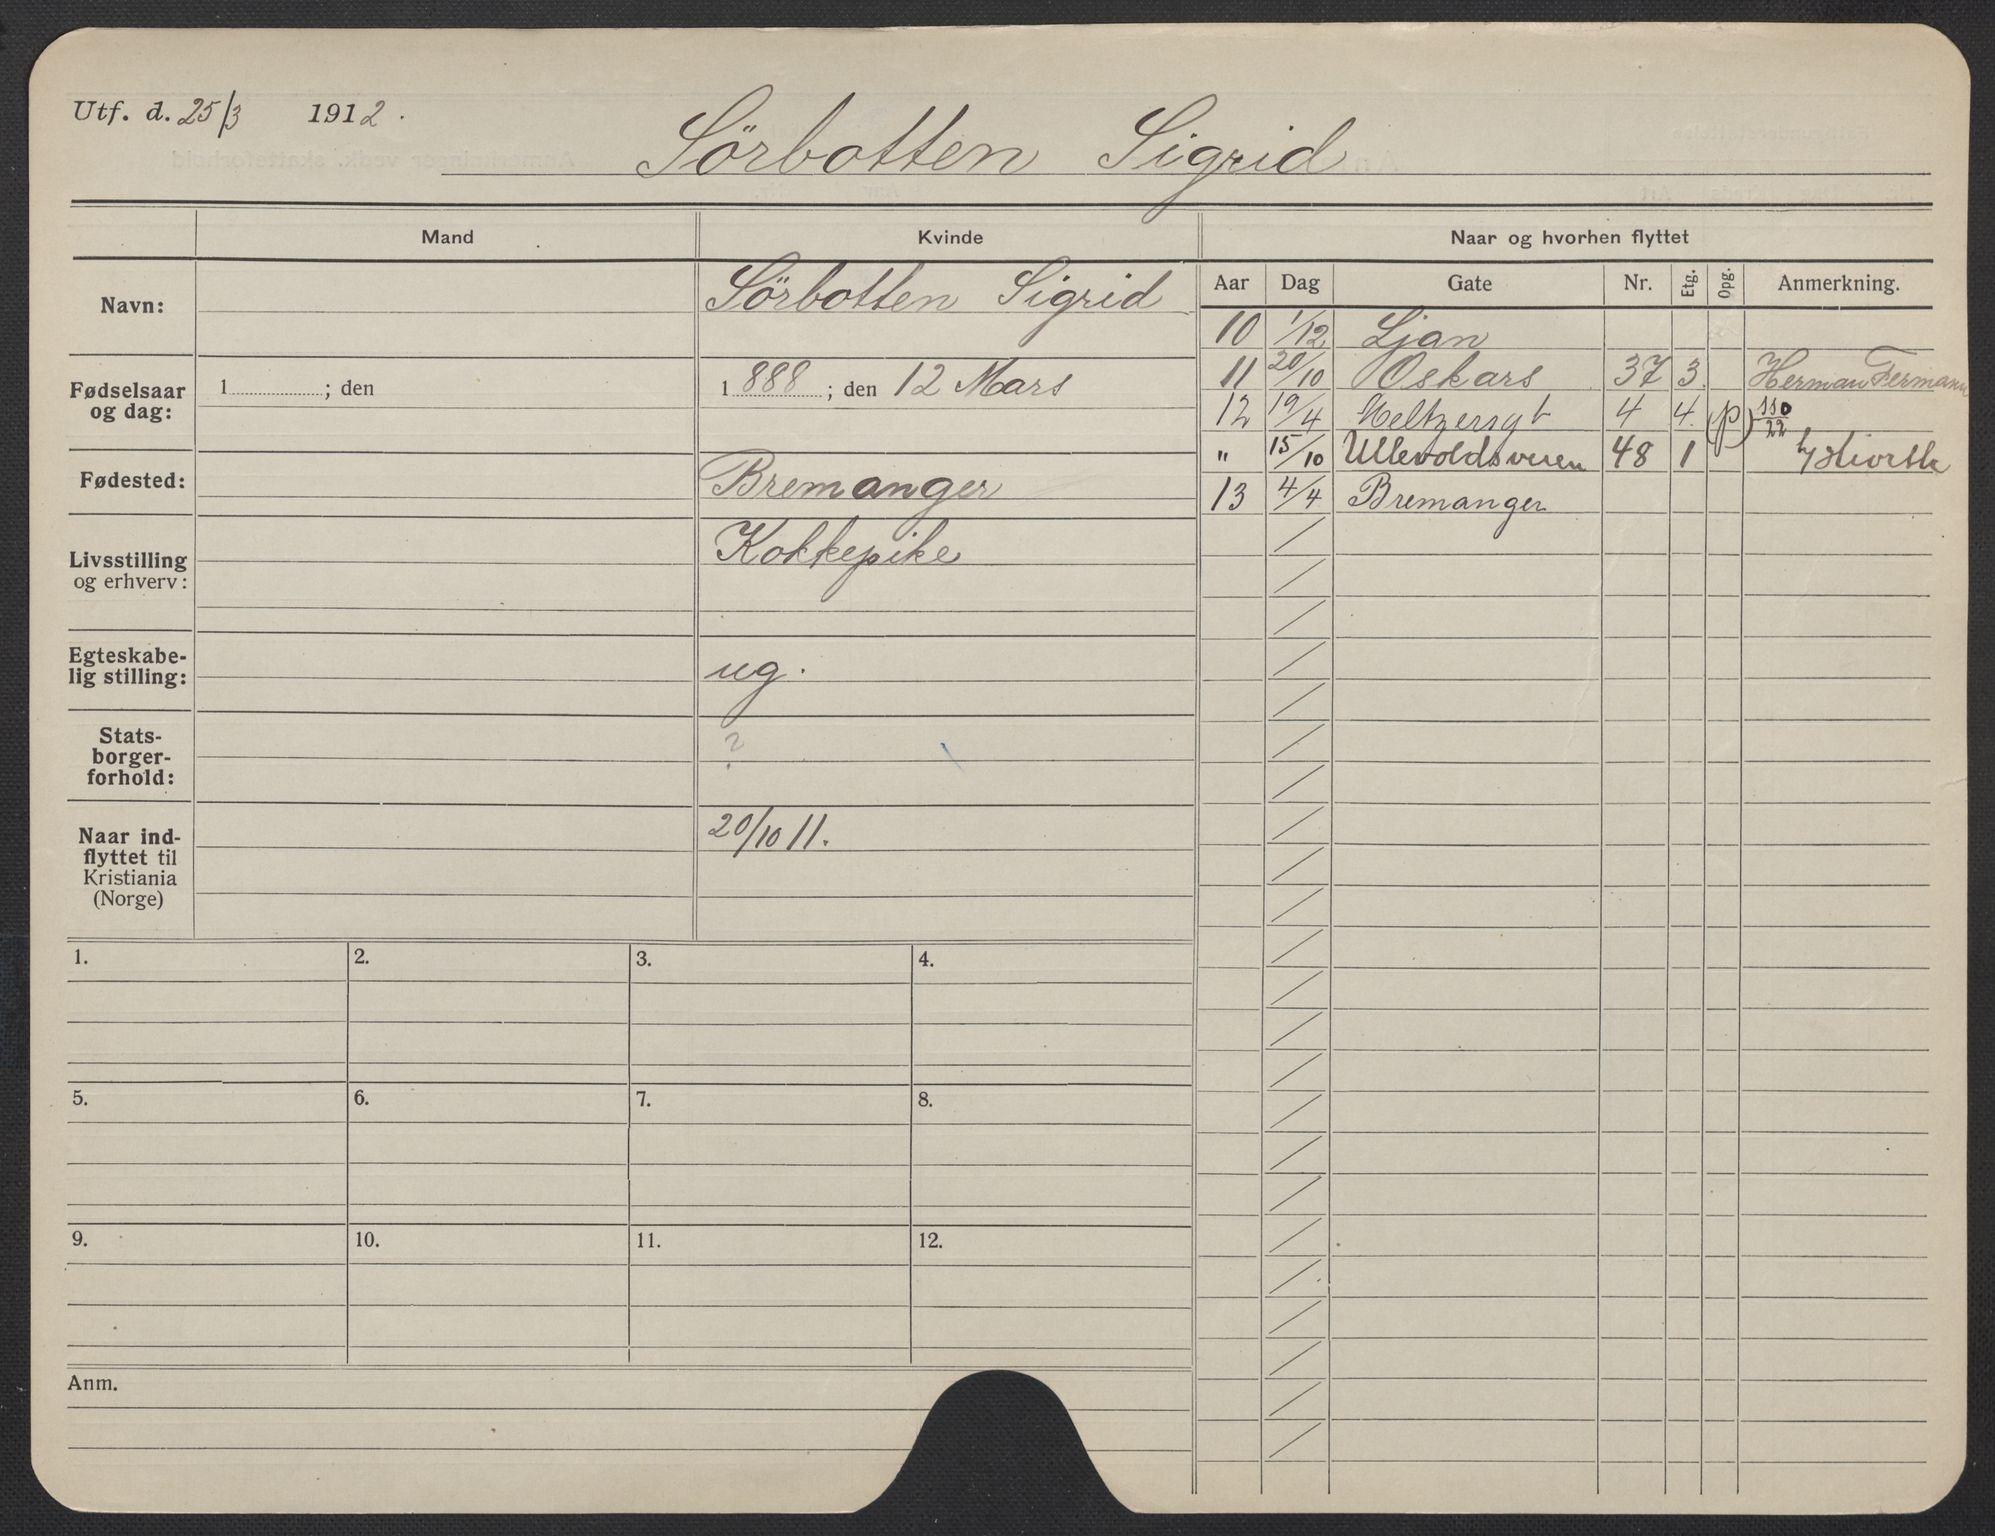 Utf. d. 25/3 1912.
Sörbotten Sigrid
Mand
Kvinde
Naar og hvorhen flyttet
Navn:
Sörbotten Sigrid
Fødselsaar og dag:
1 ; den
1888 ; den 12 Mars
Fødested:
Bremanger
Livsstilling og erhverv:
Kokkepike
Egteskabe-
lig stilling:
ug.
Stats-
borger-
forhold:
?
Naar ind-
flyttet til
Kristiania
(Norge)
20/10 11.
Aar Dag Gate Nr. Etg. Opg. Anmerkning.
10 1/12 Ljan
11 20/10 Oskars 37 3 Herman Fermann
12 19/4 Meltzersgt 4 4. (p) 110/22
" 15/10 Ullevoldsveien 48 1 Hiorth
13 4/4 Bremanger
1. 2. 3. 4.
5. 6. 7. 8.
9. 10. 11. 12.
Anm.